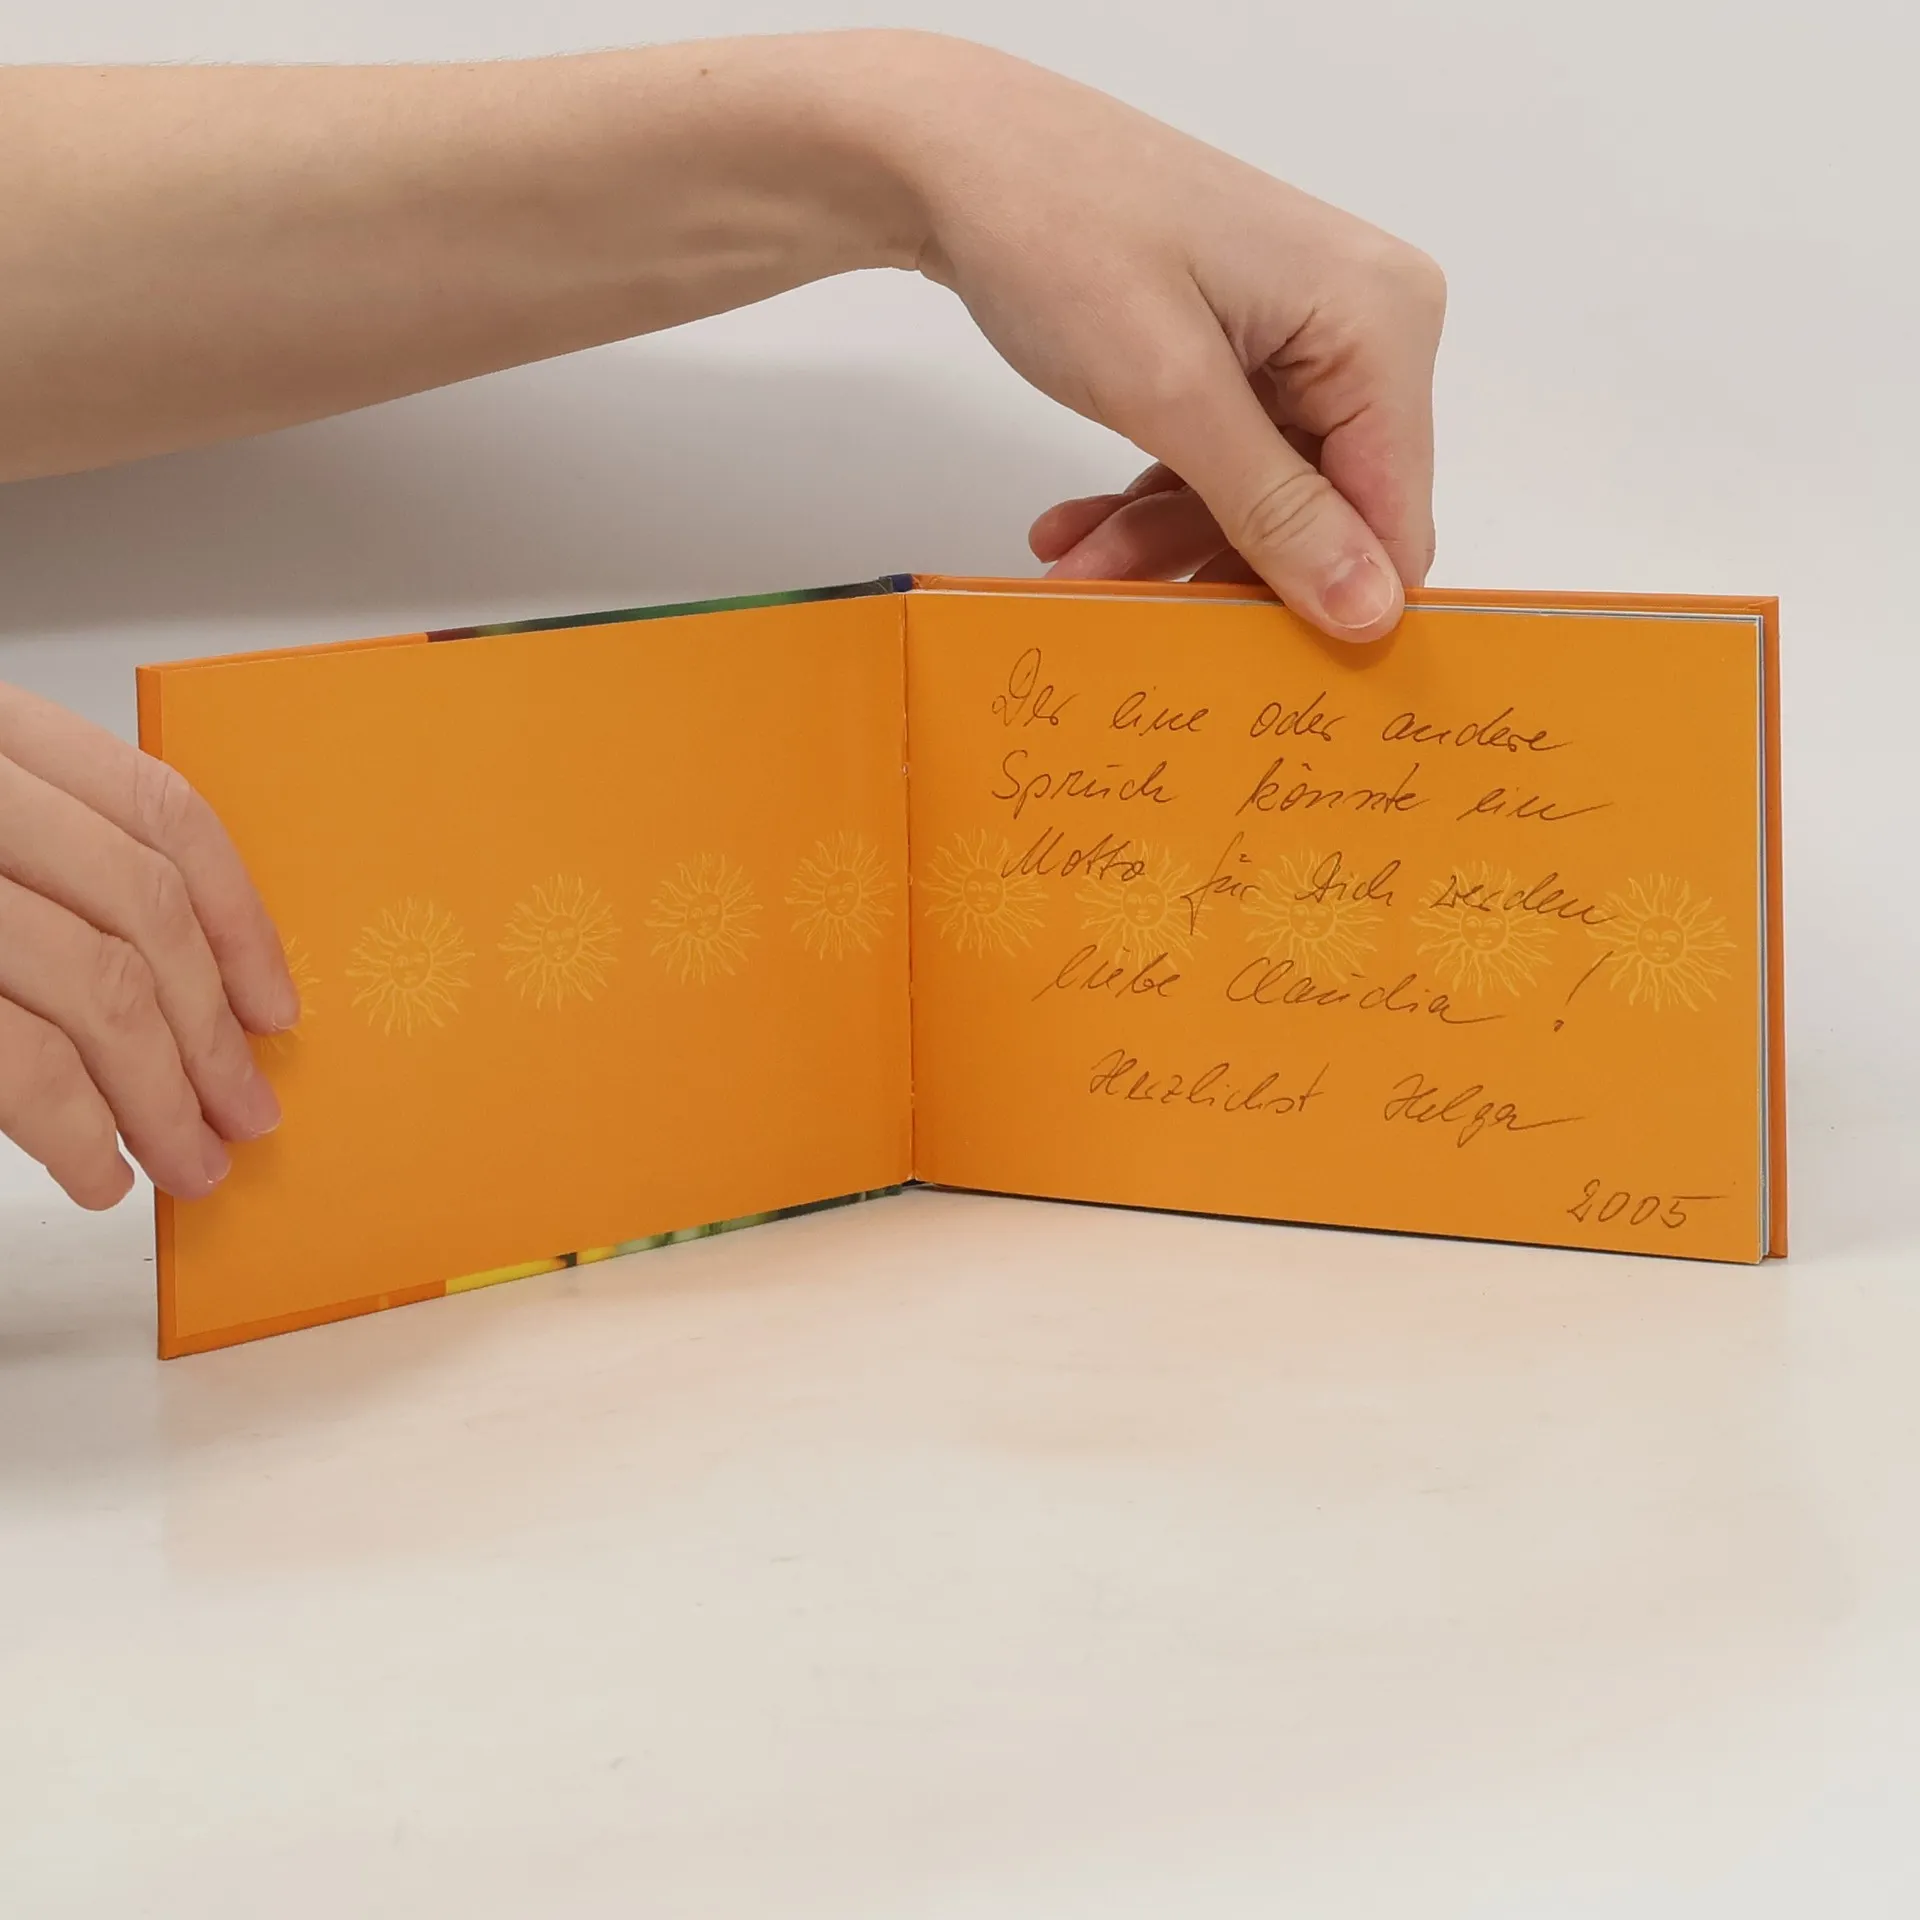 Der eine oder andere
Spruch könnte ein
Motto für Dich werden
liebe Claudia !
Herzlichst Helga
2005